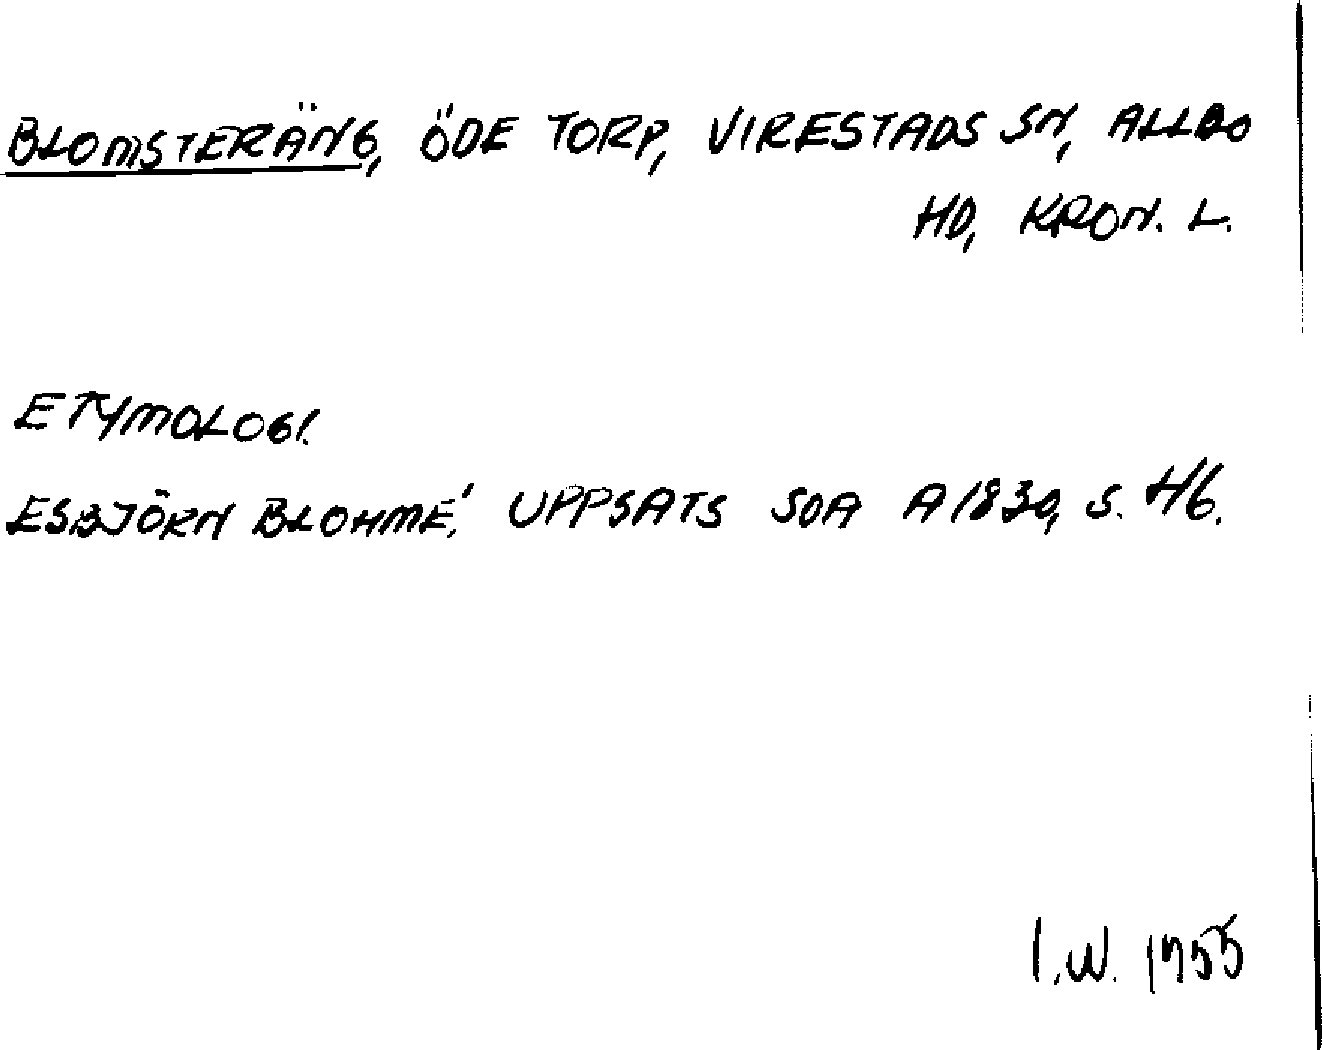 BLOMSTERÄNG, ÖDE TORP, VIRESTADS SN, ALLBO
HD, KRON. L.
ETYMOLOGI.
ESBJÖRN BLOHMÉ: UPPSATS SOA A1830, S. 46.
I.W. 1955